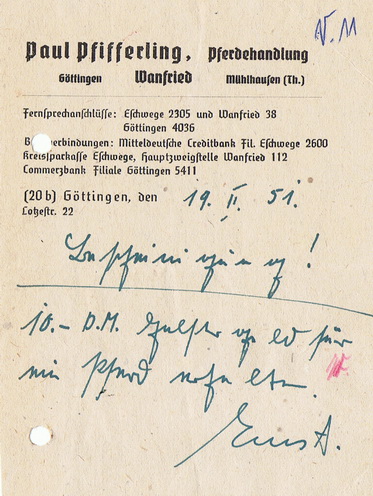 N. 11
Paul Pfifferling, Pferdehandlung
Göttingen Wanfried Mühlhausen (Th.)
Fernsprechanschlüsse: Eschwege 2305 und Wanfried 38
Göttingen 4036
B verbindungen: Mitteldeutsche Creditbank Fil. Eschwege 2600
Kreissparkasse Eschwege, Hauptzweigstelle Wanfried 112
Commerzbank Filiale Göttingen 5411
(20b) Göttingen, den 19. II. 51.
Lotzestr. 22
Bescheinigung!
10.- D.M. Halftergeld für
ein Pferd erhalten.
Ernst.